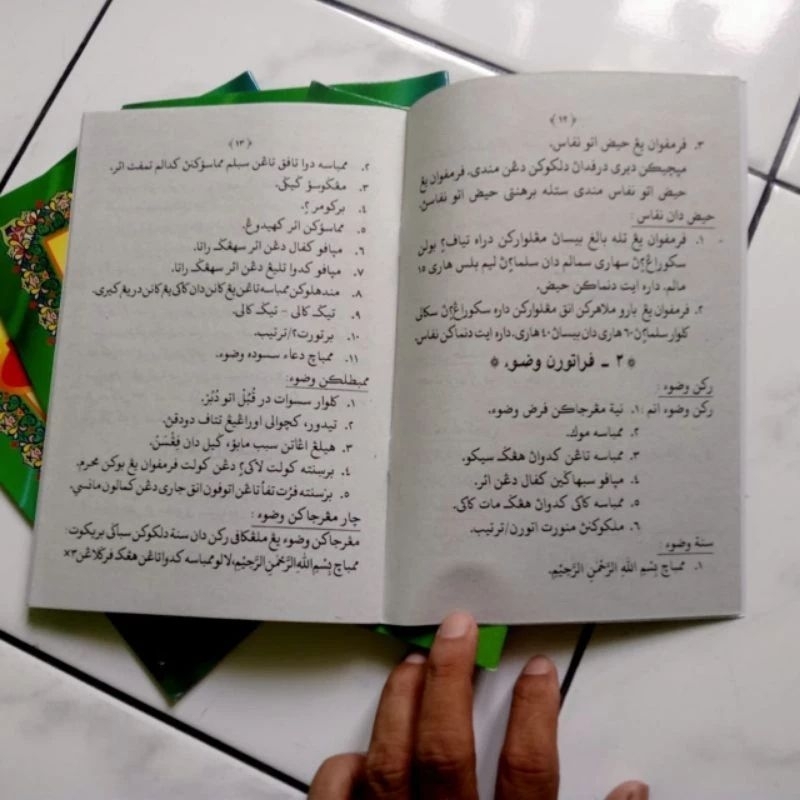 ﴿١٢﴾
٣. فرمفوان يڠ حيض اتو نفاس.
مڽجيكن ديري درفداڽ دلكوكن دڠن مندي. فرمفوان يڠ
حيض اتو نفاس مندي ستله برهنتي حيض اتو نفاسڽ.
حيض دان نفاس :
١. فرمفوان يڠ تله بالغ بيساڽ مڠلواركن دراه تياف٢ بولن
سكوراڠ٢ڽ سهاري سمالم دان سلما٢ڽ ليم بلس هاري ١٥
مالم. داره ايت دنماكن حيض.
٢. فرمفوان يڠ بارو ملاهركن انق مڠلواركن داره سكوراڠ٢ڽ سكالي
كلوار سلما٢ڽ ٦٠ هاري دان بيساڽ ٤٠ هاري. داره ايت دنماكن نفاس.
* ٢ - فراتورن وضوء *
ركن وضوء :
ركن وضوء انم : ١. نية مڠرجاكن فرض وضوء.
٢. ممباسه موك.
٣. ممباسه تاڠن كدواڽ هڠݢ سيكو.
٤. مڽافو سبهاݢين كفال دڠن اير.
٥. ممباسه كاكي كدواڽ هڠݢ مات كاكي.
٦. ملكوكنڽ منورت اتورن/ترتيب.
سنة وضوء :
١. ممباچ بِسْمِ اللهِ الرَّحْمٰنِ الرَّحِيْمِ.
﴿١٣﴾
٢. ممباسه دوا تافق تاڠن سبلم مماسوكنڽ كدالم تمفت اير.
٣. مڠݢوسوق ݢيݢي.
٤. بركومر٢.
٥. مماسوكن اير كهيدوڠ.
٦. مڽافو كفال دڠن اير سهڠݢ راتا.
٧. مڽافو كدوا تليڠ دڠن اير سهڠݢ راتا.
٨. مندهلوكن ممباسه تاڠن يڠ كانن دان كاكي يڠ كانن دري يڠ كيري.
٩. تيݢ كالي - تيݢ كالي.
١٠. برتورت٢/ترتيب.
١١. ممباچ دعاء سسوده وضوء.
ممبطلكن وضوء:
١. كلوار سسوات در قُبُلْ اتو دُبُرْ.
٢. تيدور، كچوالي اوراڠيڠ تتاف دودقڽ.
٣. هيلڠ اڠاتن سبب مابوء، ݢيل دان فِڠْسَنْ.
٤. برسنته كولت لاكي٢ دڠن كولت فرمفوان يڠ بوكن محرم.
٥. برسنته فرت تفاق تاڠن اتوفون انق جاري دڠن كمالون مانسي.
چار مڠرجاكن وضوء :
مڠرجاكن وضوء يڠ ملڠكافي ركن دان سنة دلكوكن سباݢي بريكوت:
ممباچ بِسْمِ اللهِ الرَّحْمٰنِ الرَّحِيْمِ، لالو ممباسه كدوا تاڠن هڠݢ فرݢلاڠن ٣×